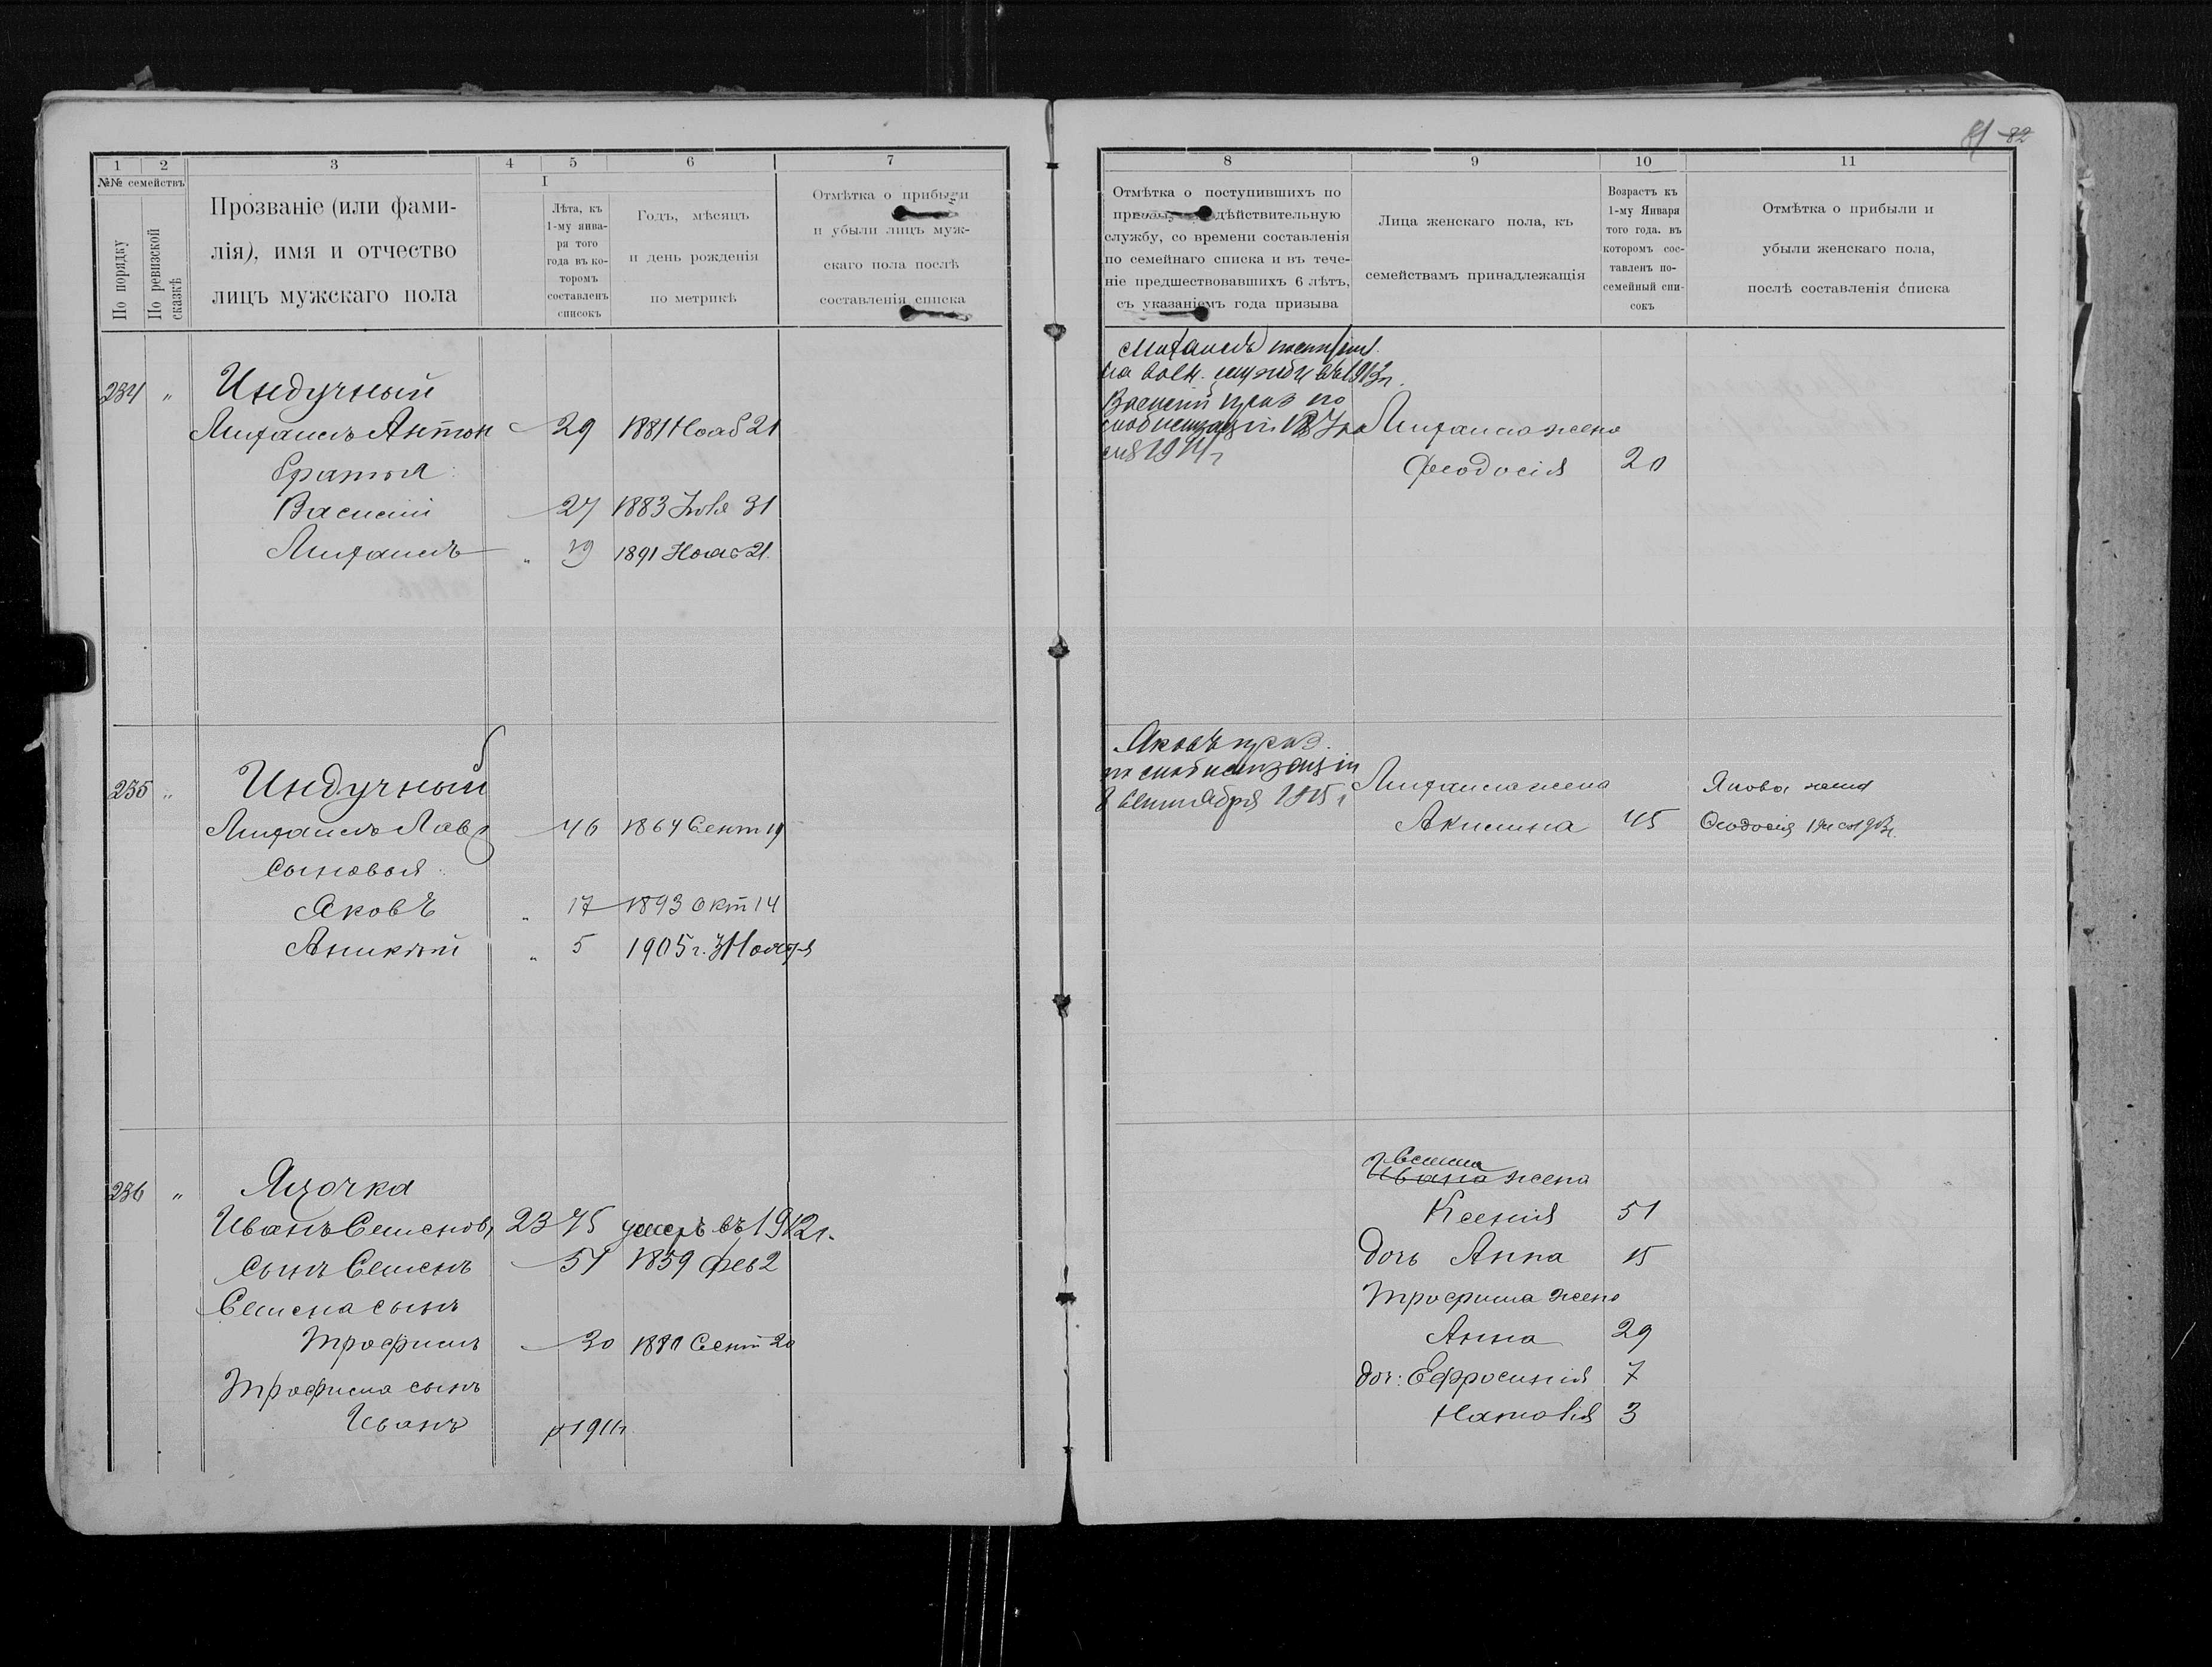 81 82
1 2 3 4 5 6 7
№№ семействъ
По порядку
По ревизской сказкѣ
Прозваніе (или фами-
лія), имя и отчество
лицъ мужскаго пола
I
Лѣта, къ
1-му янва-
ря того
года въ ко-
торомъ
составленъ
списокъ
Годъ, мѣсяцъ
и день рожденія
по метрикѣ
Отмѣтка о прибыли
и убыли лицъ муж-
скаго пола послѣ
составленія списка
234 " Индучный
Михаилъ Антон 29 1881 Нояб 21
братья:
Василій 27 1883 Іюля 31
Михаилъ " 19 1891 Нояб 21.
235 " Индучный
Михаилъ Лавр 46 1864 Сент 19
сыновья:
Яковъ " 17 1893 Окт 14
Аникій " 5 1905 г. 3 Ноября
236 " Яцочка
Иванъ Семенов 23 75 умеръ въ 1912 г.
сынъ Семенъ 51 1859 фев 2
Семена сынъ
Трофимъ 30 1880 Сент 20
Трофима сынъ
Иванъ р 1911 г
8 9 10 11
Отмѣтка о поступившихъ по
дѣйствительную
службу, со времени составленія
по семейнаго списка и въ тече-
ніе предшествовавшихъ 6 лѣтъ,
съ указаніемъ года призыва
Лица женскаго пола, къ
семействамъ принадлежащія
Возрастъ къ
1-му Января
того года. въ
которомъ сос-
тавленъ по-
семейный спи-
сокъ
Отмѣтка о прибыли и
убыли женскаго пола,
послѣ составленія списка
Михаилъ
на воен. службу въ 1912 г.
Василій приз по
мобилизаціи
1914 г
Михаила жена
Феодосія 20
Яковъ приз.
по мобилизаціи
8 Сентября 1915 г
Михаила жена
Акилина 45
Якова жена
Феодосія
Семена
Ивана жена
Ксенія 51
дочь Анна 15
Трофима жена
Анна 29
доч: Ефросинія 7
Наталія 3